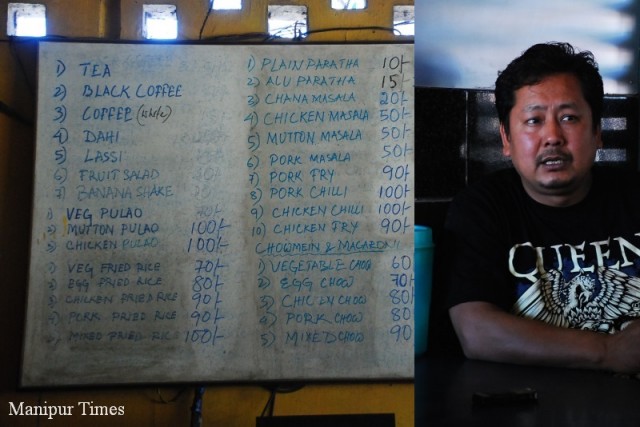 1) TEA
2) BLACK COFFEE
3) COFFEE (white)
4) DAHI
5) LASSI
6) FRUIT SALAD
7) BANANA SHAKE
1) VEG PULAO
2) MUTTON PULAO 100/-
3) CHICKEN PULAO 100/-
1) VEG FRIED RICE 70/-
2) EGG FRIED RICE 80/-
3) CHICKEN FRIED RICE 90/-
4) PORK FRIED RICE 90/-
5) MIXED FRIED RICE 100/-
1) PLAIN PARATHA 10/-
2) ALU PARATHA 15/-
3) CHANA MASALA 20/-
4) CHICKEN MASALA 50/-
5) MUTTON MASALA 50/-
6) PORK MASALA 50/-
7) PORK FRY 90/-
8) PORK CHILLI 100/-
9) CHICKEN CHILLI 100/-
10) CHICKEN FRY 90/-
CHOWMEIN & MACARONI
1) VEGETABLE CHOW 60
2) EGG CHOW 70/-
3) CHICKEN CHOW 80/-
4) PORK CHOW 80
5) MIXED CHOW 90
QUEEN
Manipur Times